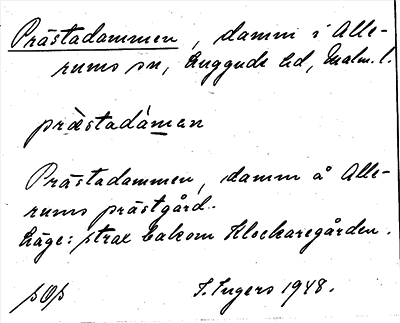 Prästadammen, damm i Alle-
rums sn, Luggude hd, Malm. l.
præ̀stadámen
Prästadammen, damm å Alle-
rums prästgård.
Läge: strax bakom Klockaregården.
sOs I. Ingers 1948.